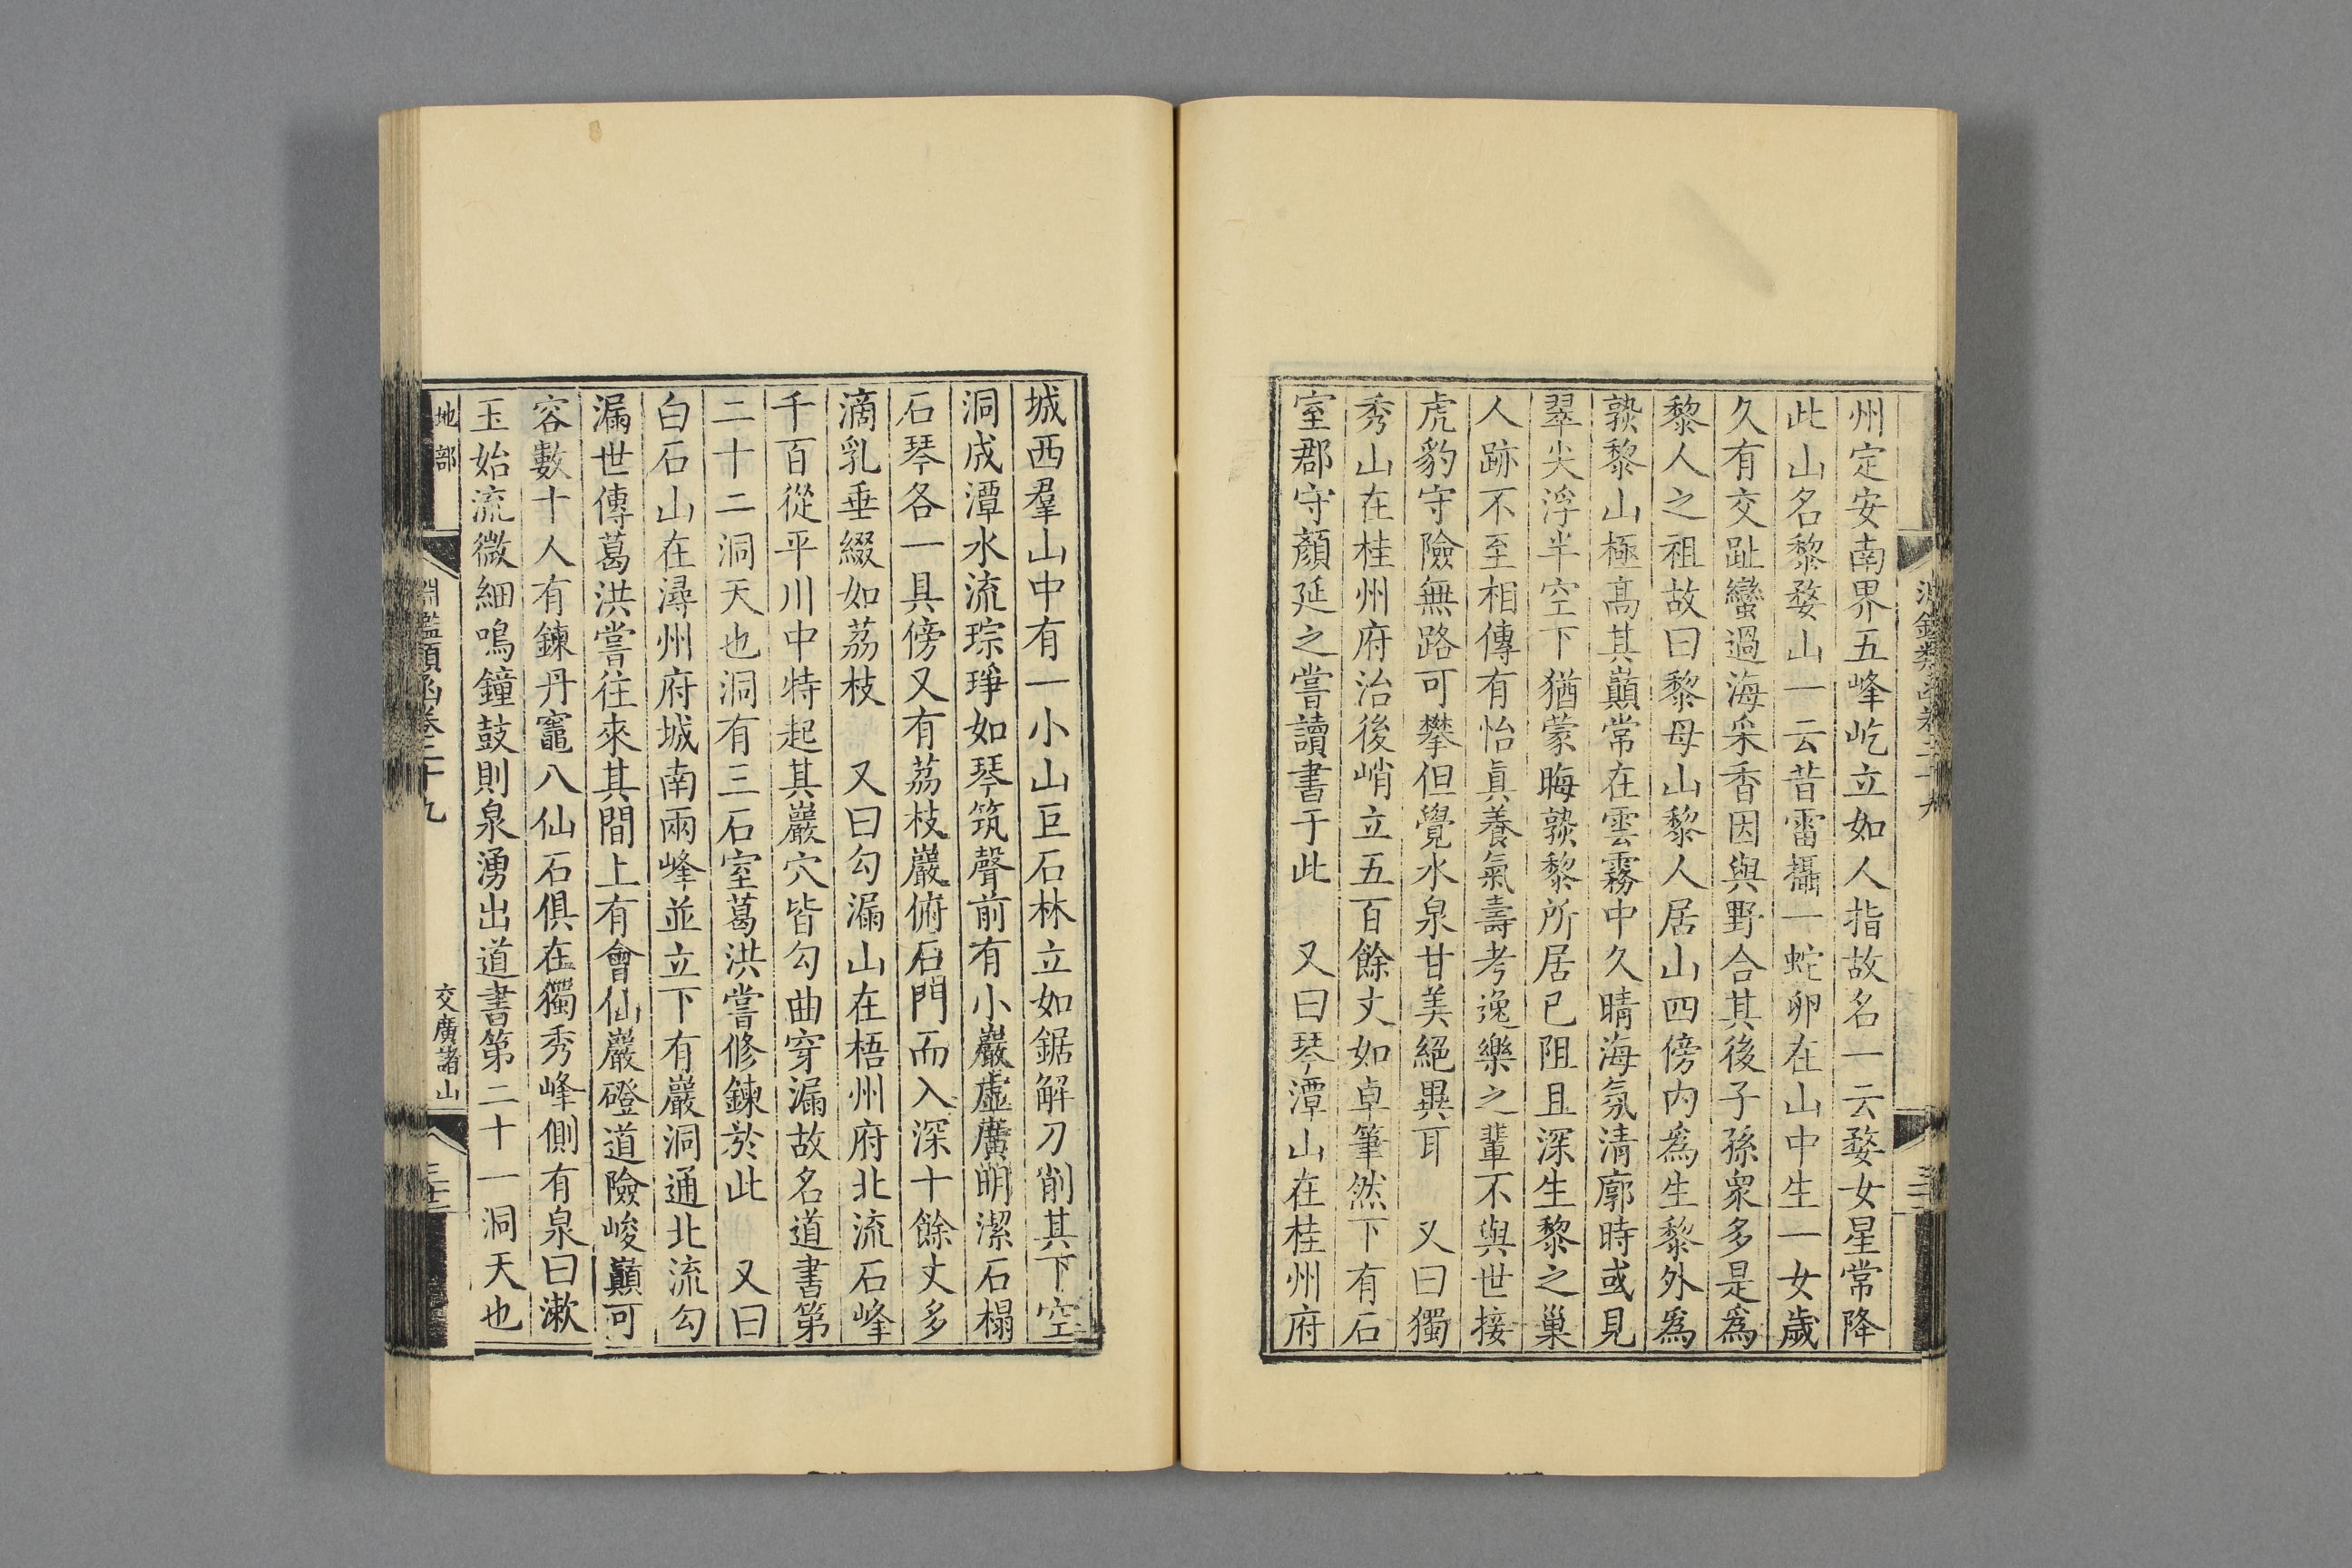 州定安南界五峰屹立如人指故名一云婺女星常降
此山名黎婺山一云昔雷攝一蛇卵在山中生一女歲
久有交趾蠻過海采香因與野合其後子孫衆多是爲
黎人之祖故曰黎母山黎人居山四傍内爲生黎外爲
孰黎山極高其巔常在雲霧中久晴海氛清廓時或見
翠尖浮半空下猶蒙晦孰黎所居已阻且深生黎之巢
人跡不至相傳有怡眞養氣壽考逸樂之輩不與世接
虎豹守險無路可攀但覺水泉甘美絕異耳　又曰獨
秀山在桂州府治後峭立五百餘丈如卓筆然下有石
室郡守顏延之嘗讀書于此　又曰琴潭山在桂州府
城西羣山中有一小山巨石林立如鋸解刀削其下空
洞成潭水流琮琤如琴筑聲前有小巖虛廣明潔石榻
石琴各一具傍又有荔枝巖俯石門而入深十餘丈多
滴乳垂綴如荔枝　又曰勾漏山在梧州府北流石峰
千百從平川中特起其巖穴皆勾曲穿漏故名道書第
二十二洞天也洞有三石室葛洪嘗修鍊於此　又曰
白石山在潯州府城南兩峰並立下有巖洞通北流勾
漏世傳葛洪嘗往來其間上有會仙巖磴道險峻巔可
容數十人有鍊丹竈八仙石俱在獨秀峰側有泉曰漱
玉始流微細鳴鐘鼓則泉湧出道書第二十一洞天也
地部
淵鑑類函卷二十九
交廣諸山